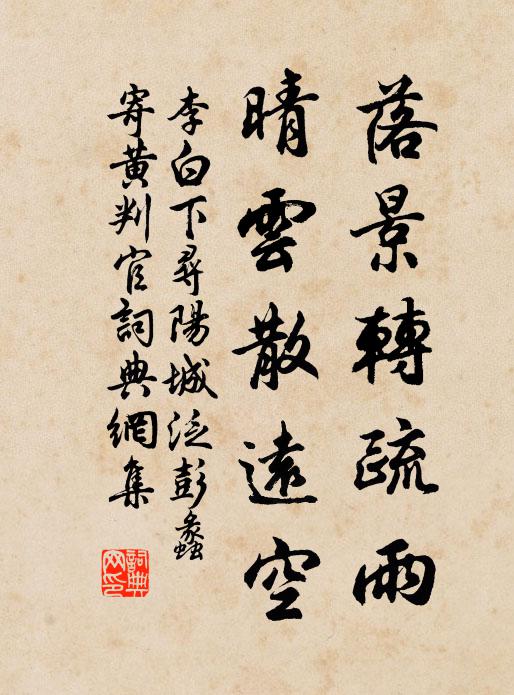 落景轉疏雨
晴雲散遠空
李白下尋陽城泛彭蠡
寄黃判官詞典網集
詞典
网印